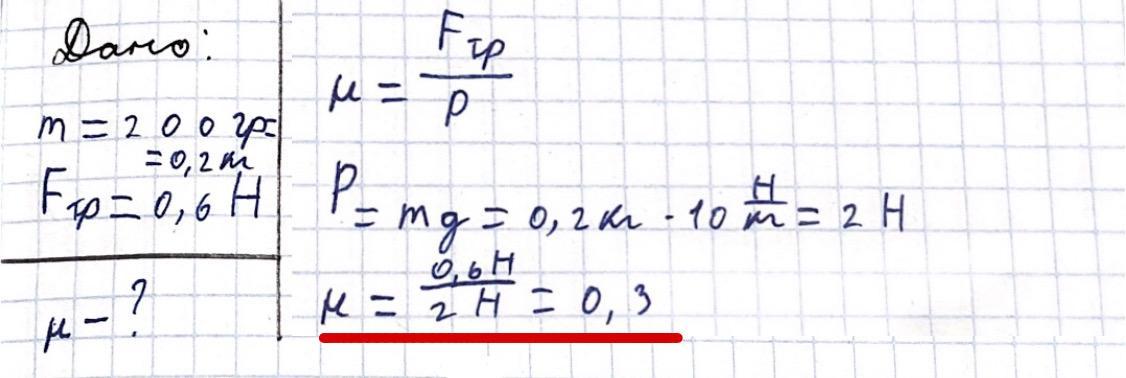 Дано:
m = 200 гр=
=0,2 кг
Fтр = 0,6 Н
μ – ?
μ = Fтр / P
P = mg = 0,2 кг · 10 Н/кг = 2 Н
μ = 0,6 Н / 2 Н = 0,3